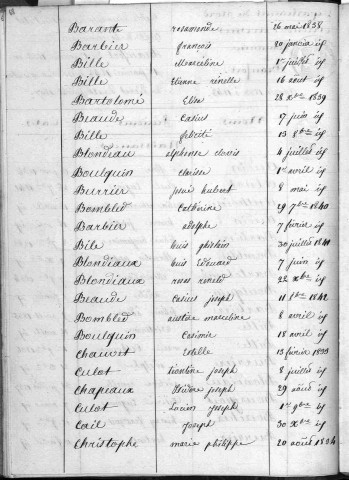 Barante rosemonde 26 mai 1838
Barbier françois 20 janvier id
Bille Marceline 1er juillet id
Bille Etienne 16 aout id
Bartolomé Elisa 28 Xbre 1839
Beaude Casius 17 juin id
Bille félicité 13 8bre id
Blondiau alphonse clovis 4 juillet id
Boulquin clarisse 1er avril id
Burrier hubert 8 mai id
Bombled Catherine 29 7bre 1840
Barbier adolphe 7 février id
Bile louis ghislain 30 juillet 1841
Blondiaux louis Edouard 7 juin id
Blondiaux 22 Xbre id
Beaude Casius joseph 11 8bre 1842
Bombled marceline 8 avril id
Boulquin Casimir 18 avril id
Chauvet Estelle 13 fevrier 1833
Culot Léontine joseph 8 juillet id
Chapeaux joseph 29 aout id
Culot Lucien joseph 1er 9bre id
Cail joseph 30 Xbre id
Christophe marie philippe 20 août 1834